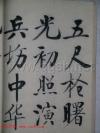 五尺枪曙
光初照演
兵场中华